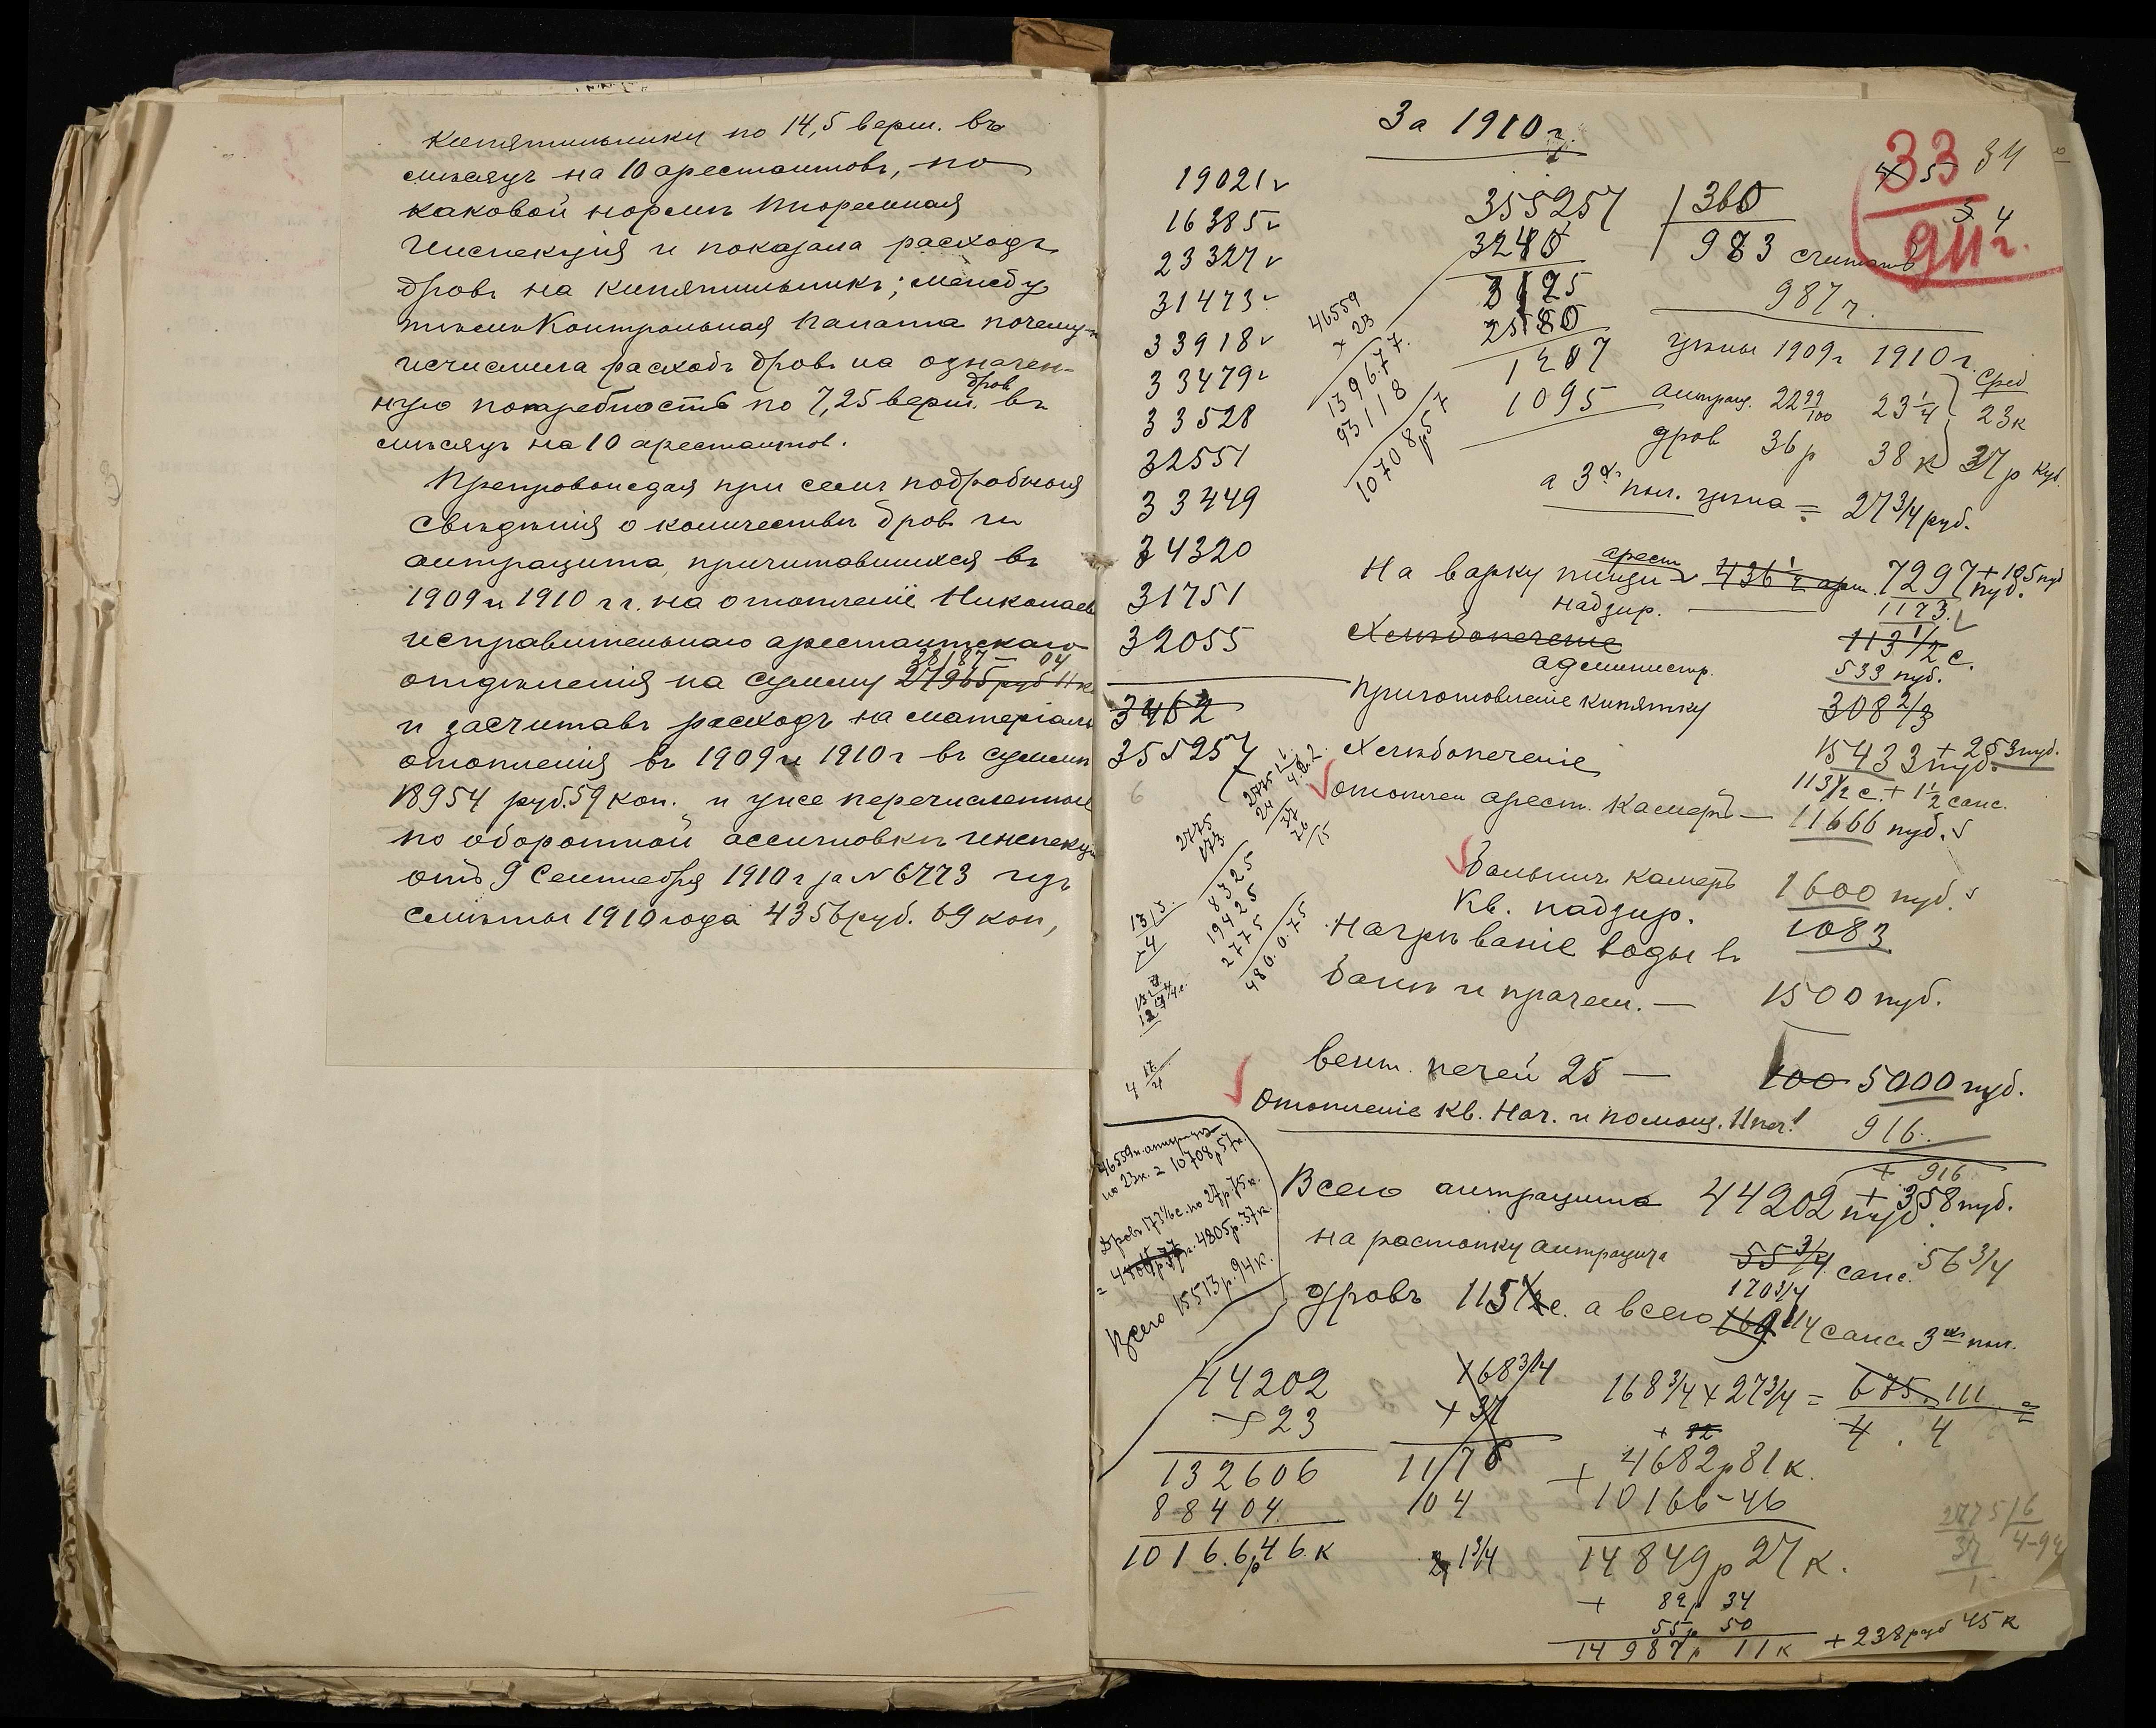 кипятильники по 14,5 верш. въ
мѣсяцъ на 10 арестантовъ, по
каковой нормѣ Тюремная
Инспекція и показала расходъ
дровъ на кипятильникъ; между
тѣмъ Контрольная Палата почему-то
исчислила расходъ дровъ на означен-
дров
ную потребность по 7,25 верш. въ
мѣсяцъ на 10 арестантов.
Препровождая при семъ подробныя
свѣдѣнія о количествѣ дров и
антрацита, причитавшихся въ
1909 и 1910 гг. на отопленіе Николаев
исправительнаго арестантскаго
28187 — 04
отдѣленія на сумму 27965 руб 11 к
и засчитавъ расходъ на матеріалы
отопленія въ 1909 и 1910 г въ суммѣ
18954 руб. 59 коп. и уже перечисленные
по оборотной ассигновкѣ инспекц
отъ 9 Сентября 1910 г за № 6773 изъ
смѣты 1910 года 4356 руб. 69 коп,
За 1910 г.
33
911 г.
34
19021
16385
23327
31473
33918
33479
33528
32551
33449
34320
31751
32055
3462
355257
355257 | 360
3240
983 считать
3125
987 г.
2580
1207
1095
46559
× 23
139677
93118
10708р57
цѣны 1909 г 1910 г.
сред
антрац. 22 99/100 23 1/4 23 к
дров 36 р 38 к 37 р куб.
а 3хъ пол. цѣна = 27 3/4 руб.
На варку пищи арест 436 1/2 арш. 7297 + 105 пуд
надзир. 1173
Хлѣбопеченіе 113 1/2 с.
администр. 533 пуд.
Приготовленіе кипятку 308 2/3
15433 + 253 пуд.
Хлѣбопеченіе 113 1/2 с. + 1 1/2 саж.
Отоплен арест. камеръ — 11666 пуд.
Больнич камеръ 1600 пуд.
Кв. надзир. 1083
Нагрѣваніе воды въ
банѣ и прачеш. — 1500 пуд.
вент. печей 25 — 100 5000 пуд.
Отопленіе кв. Нач. и помощ. 11 печ! 916
+ 916
Всего антрацита 44202 пуд + 358 пуд.
на растопку антрацита 55 3/4 саж. 56 3/4
170 3/4
дровъ 115 с. а всего 169 1/4 саж 3хъ пол.
46559 п. антрацита
по 23 к. = 10708 р 57 к.
Дровъ 173 1/6 с. по 27 р 75 к.
= 4805 р. 37 к.
Всего 15513 р. 94 к.
2775
173
8325
19425
2775
480.0.75
44202
× 23
132606
88404
10166р46 к
168 3/4
× 37
1176
104
1 3/4
168 3/4 × 27 3/4 = 675 . 111 =
4 . 4
4682 р 81 к.
+ 10166 – 46
14849 р 27 к.
+ 82 р 34
55 р 50
14987 р 11 к + 238 руб 45 к
2775 | 6
37
4-92